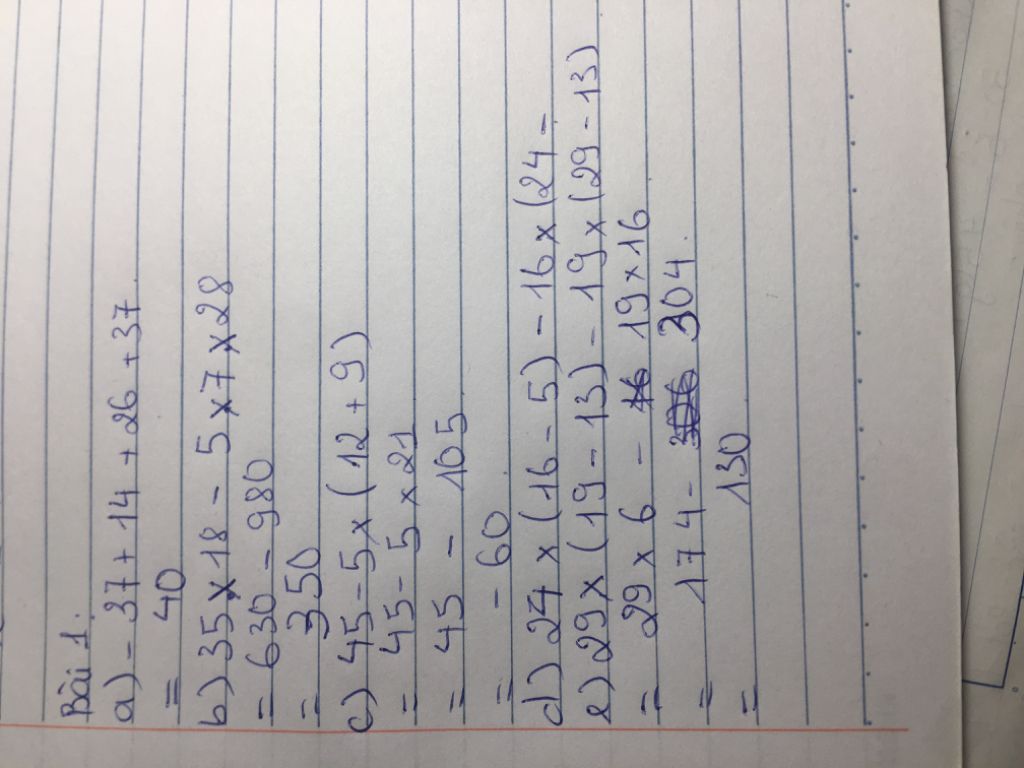 Bài 1.
a) - 37 + 14 + 26 + 37
= 40
b) 35 x 18 - 5 x 7 x 28
= 630 - 980
= 350
c) 45 - 5 x ( 12 + 9 )
= 45 - 5 x 21
= 45 - 105
= - 60
d) 24 x ( 16 - 5 ) - 16 x ( 24 -
e) 29 x ( 19 - 13 ) - 19 x ( 29 - 13 )
= 29 x 6 - 19 x 16
= 174 - 304.
= 130